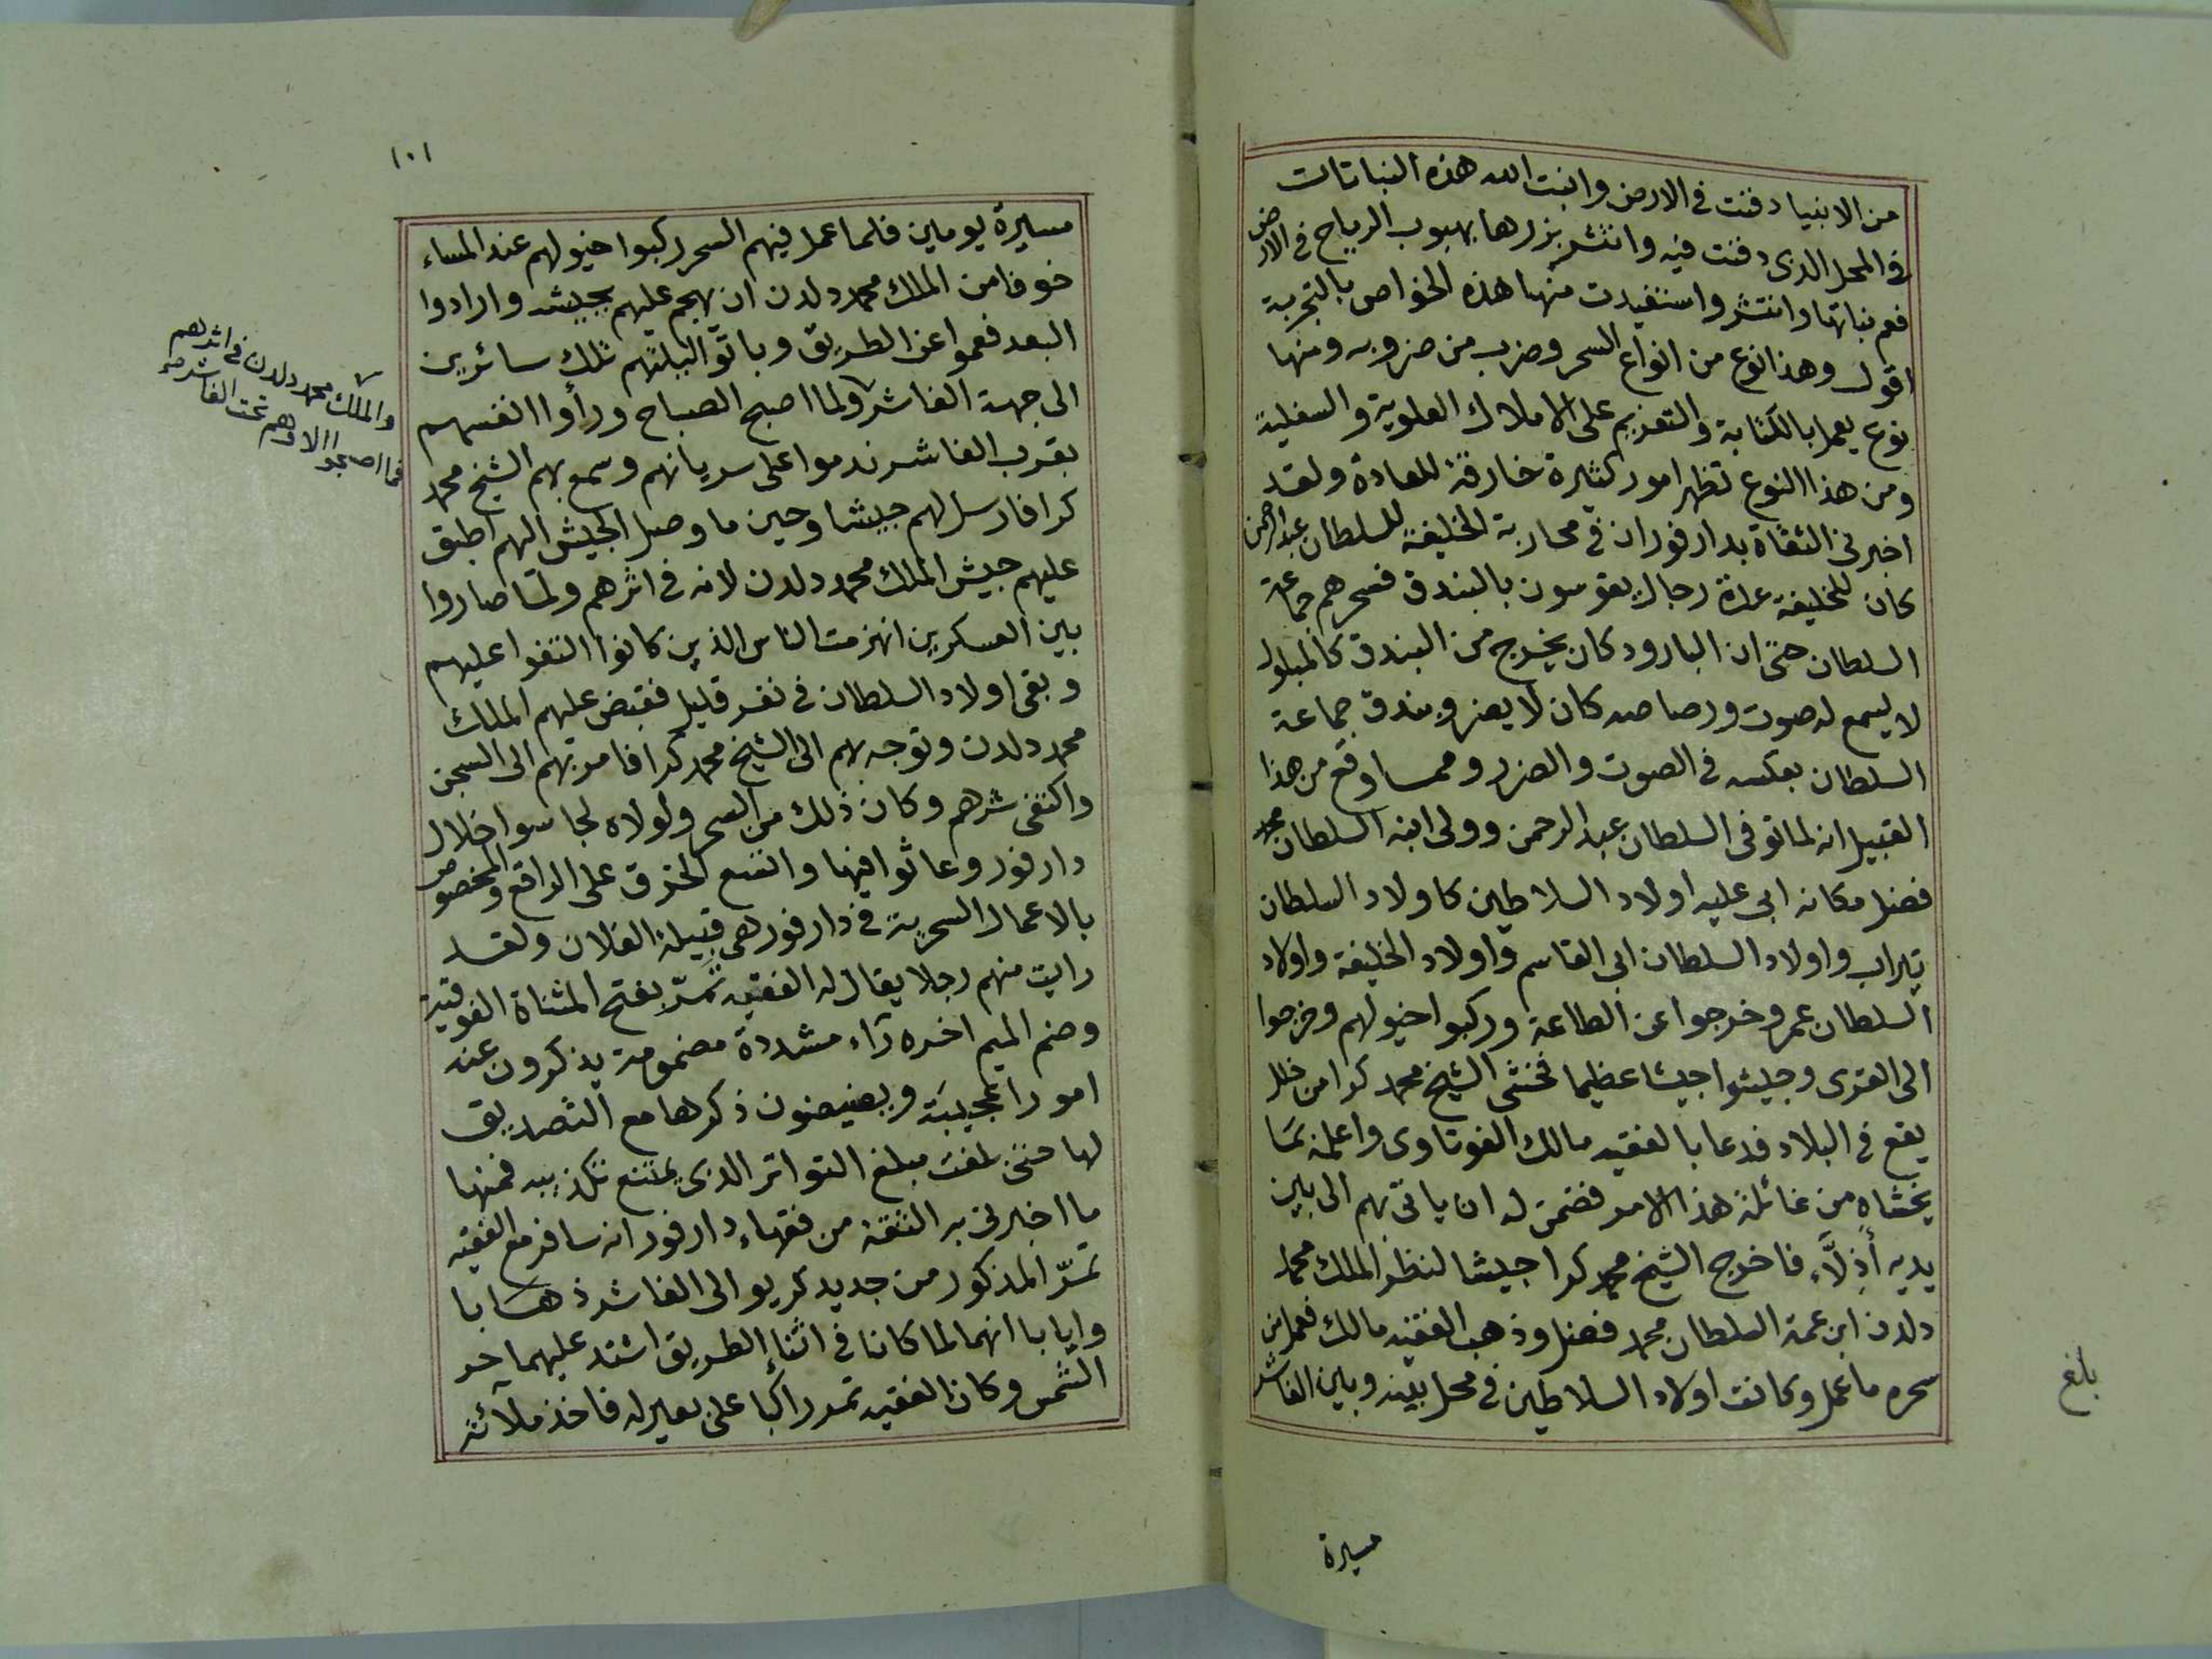 من الانبياء دفنت فى الارض وانبت الله هذه النباتات
فى المحل الذى دفنت فيه وانتشر بزرها بهبوب الرياح فى الارض
فعم نباتها وانتشر واستفيدت منها هذه الخواص بالتجربة
اقول وهذا نوع من انواع السحر وضرب من ضروبه ومنها
نوع يعمل بالكتابة والتعزيم على الاملاك العلوية والسفلية
ومن هذا النوع تظهر امور كثيرة خارقة للعادة ولقد
اخبرنى الثقاة بدارفور ان فى محاربة الخليفة للسلطان عبد الرحمن
كان للخليفة عدة رجال يقوسون بالبندق فسحرهم جماعة
السلطان حتى ان البارود كان يخرج من البندق كالمبلول
لا يسمع له صوت ورصاصه كان لا يضر وبندق جماعة
السلطان بعكسه فى الصوت والضرر ومما وقع من هذا
القبيل انه لما توفى السلطان عبد الرحمن وولى ابنه السلطان محمد
فضل مكانه ابى عليه اولاد السلاطين كاولاد السلطان
تيراب واولاد السلطان ابى القاسم واولاد الخليفة واولاد
السلطان عمر وخرجوا عن الطاعة وركبوا خيولهم وخرجوا
الى القرى وجيشوا جيشا عظيما فخشى الشيخ محمد كرا من خلل
يقع فى البلاد فدعا بالفقيه مالك الفوتاوى واعلمه بما
يخشاه من غائلة هذا الامر فضمن له ان ياتى بهم الى بين
يديه أذلّاء فاخرج الشيخ محمد كرا جيشا لنظر الملك محمد
دلدن ابن عمة السلطان محمد فضل وذهب الفقيه مالك فعمل من
سحره ما عمل وكانت اولاد السلاطين فى محل بينه وبين الفاشر
بلغ
مسيرة
١٠١
مسيرة يومين فلما عمل فيهم السحر ركبوا خيولهم عند المساء
خوفا من الملك محمد دلدن ان يهجم عليهم بجيشه وارادوا
البعد فعموا عن الطريق وباتوا ليلتهم تلك سائرين
الى جهة الفاشر ولما اصبح الصباح ورأوا انفسهم
بقرب الفاشر ندموا على سريانهم وسمع بهم الشيخ محمد
كرا فارسل لهم جيشا وحين ما وصل الجيش اليهم اطبق
عليهم جيش الملك محمد دلدن لانه فى اثرهم ولما صاروا
بين العسكرين انهزمت الناس الذين كانوا التفوا عليهم
وبقى اولاد السلطان فى نفر قليل فقبض عليهم الملك
محمد دلدن وتوجه بهم الى الشيخ محمد كرا فامر بهم الى السجن
واكتفى شرهم وكان ذلك من السحر ولولاه لجاسوا خلال
دارفور وعاثوا فيها واتسع الخرق على الراقع والمخصوص
بالاعمال السحرية فى دارفور هى قبيلة الفلان ولقد
رايت منهم رجلا يقال له الفقيه تَمُرّ بفتح المثناة الفوقية
وضم الميم اخره رآء مشددة مضمومة يذكرون عنه
امورا عجيبة ويفيضون ذكرها مع التصديق
لها حتى بلغت مبلغ التواتر الذى يمتنع تكذيبه فمنها
ما اخبرنى به الثقة من فقهاء دارفور انه سافر مع الفقيه
تمرّ المذكور من جديد كريو الى الفاشر ذهابا
وايابا انهما لما كانا فى اثناء الطريق اشتد عليهما حر
الشمس وكان الفقيه تمر راكبا على بعير له فاخذ ملآئته
والملك محمد دلدن فى اثرهم
فما اصبحوا الا وهم تحت الفاشر صح